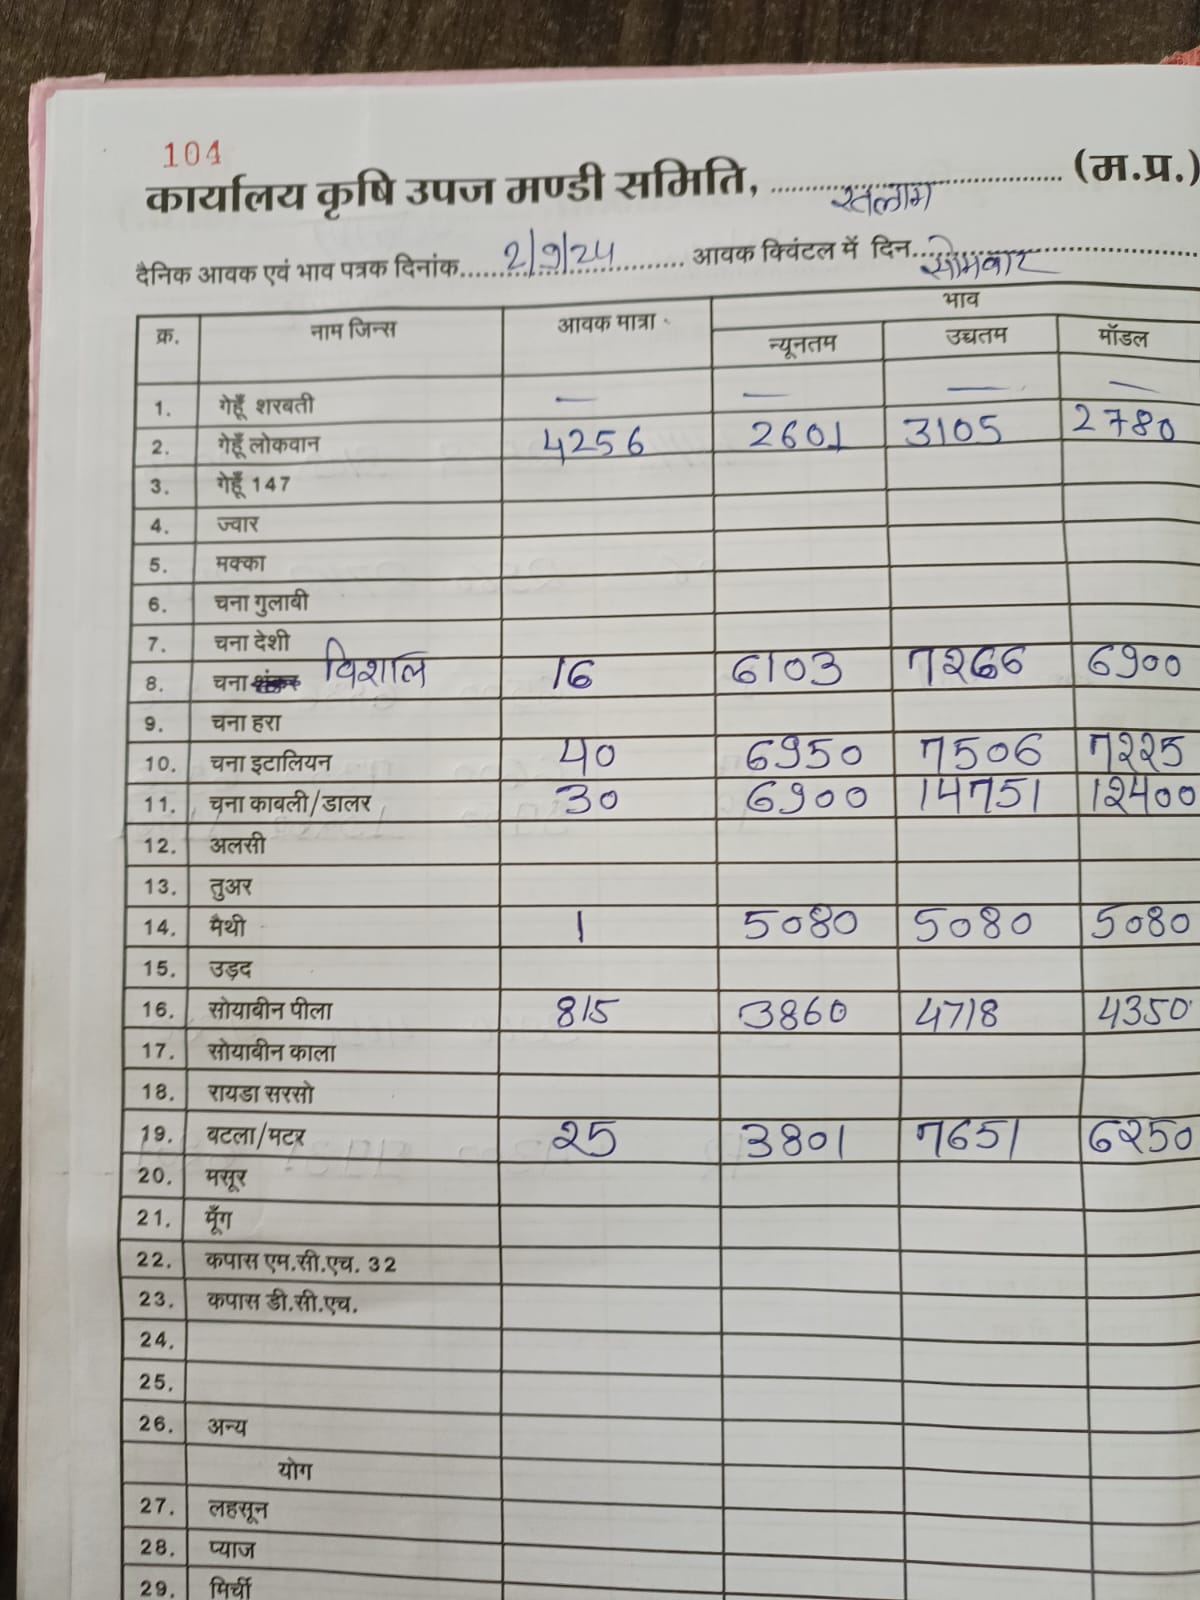 104
कार्यालय कृषि उपज मण्डी समिति, रतलाम (म.प्र.)
दैनिक आवक एवं भाव पत्रक दिनांक 2/9/24 आवक क्विंटल में दिन सोमवार
क्र. नाम जिन्स आवक मात्रा भाव
न्यूनतम उच्चतम मॉडल
1. गेहूँ शरबती — — — —
2. गेहूँ लोकवान 4256 2601 3105 2780
3. गेहूँ 147
4. ज्वार
5. मक्का
6. चना गुलाबी
7. चना देशी
8. चना विशाल 16 6103 7266 6900
9. चना हरा
10. चना इटालियन 40 6950 7506 7225
11. चना काबली/डालर 30 6900 14751 12400
12. अलसी
13. तुअर
14. मैथी 1 5080 5080 5080
15. उड़द
16. सोयाबीन पीला 815 3860 4718 4350
17. सोयाबीन काला
18. रायडा सरसो
19. बटला/मटर 25 3801 7651 6250
20. मसूर
21. मूँग
22. कपास एम.सी.एच. 32
23. कपास डी.सी.एच.
24.
25.
26. अन्य
योग
27. लहसून
28. प्याज
29. मिर्ची